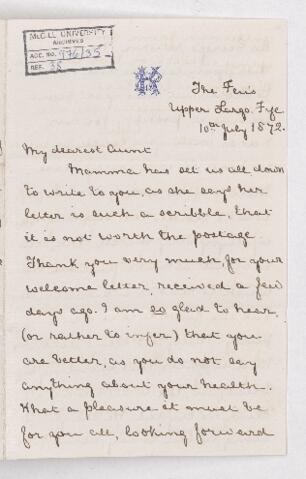 McGILL UNIVERSITY
ARCHIVES
ACC. NO. 976/35
REF. 38
The Firs
Upper Largo. Fife
10th July 1872.
My dearest Aunt
Mamma has set us all down
to write to you, as she says her
letter is such a scribble, that
it is not worth the postage.
Thank you very much, for your
welcome letter, received a few
days ago. I am so glad to hear,
(or rather to infer) that you
are better, as you do not say
anything about your health.
What a pleasure it must be
for you all, looking forward